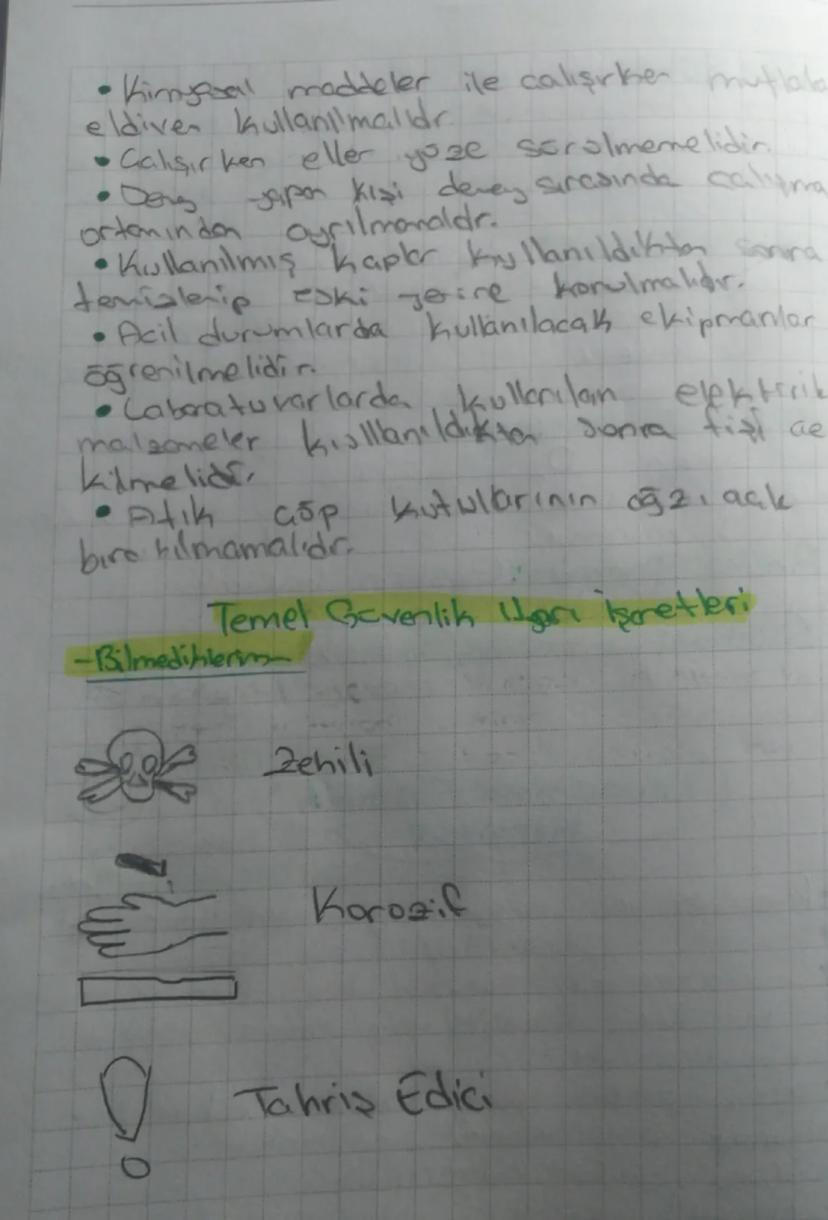 • Kimyasal maddeler ile calışırken mutlaka
eldiven kullanılmalıdr.
• Calışırken eller yüze sürülmemelidir.
• Deney yapan kişi deney sırasında calışma
ortamından ayrılmamalıdr.
• Kullanılmış kaplar kullanıldıktan sonra
temizlenip eski yerine konulmalıdır.
• Acil durumlarda kullanılacak ekipmanlar
öğrenilmelidir.
• Laboratuvarlarda kullanılan elektirik
malzemeler kullanıldıktan sonra fişi çe
kilmelidir.
• Atık çöp kutularının ağzı açık
bırakılmamalıdr.
Temel Güvenlik Uyarı İşaretleri
-Bilmediklerim-
Zehili
Korozif
Tahriş Edici